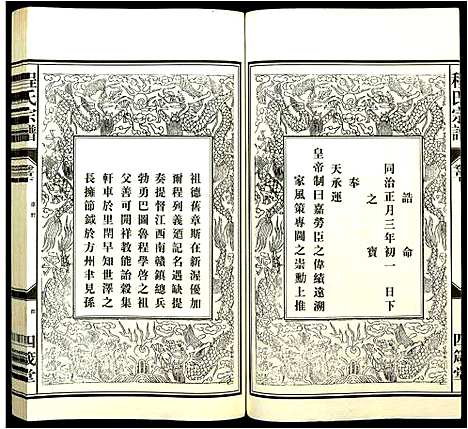 程氏宗譜
誥命
同治正月三年初一日下
之寶
奉
天承運
皇帝制曰嘉勞臣之偉績遠溯
家風策專閫之崇勳上推
四箴堂
程氏宗譜
祖德舊章斯在新渥優加
爾程列義迺記名遇缺提
奏提督江西南贛鎮總兵
勃勇巴圖魯程學啓之祖
父善可開祥教能詒穀集
軒車於里閈早知世澤之
長擁節鉞於方州聿見孫
四箴堂